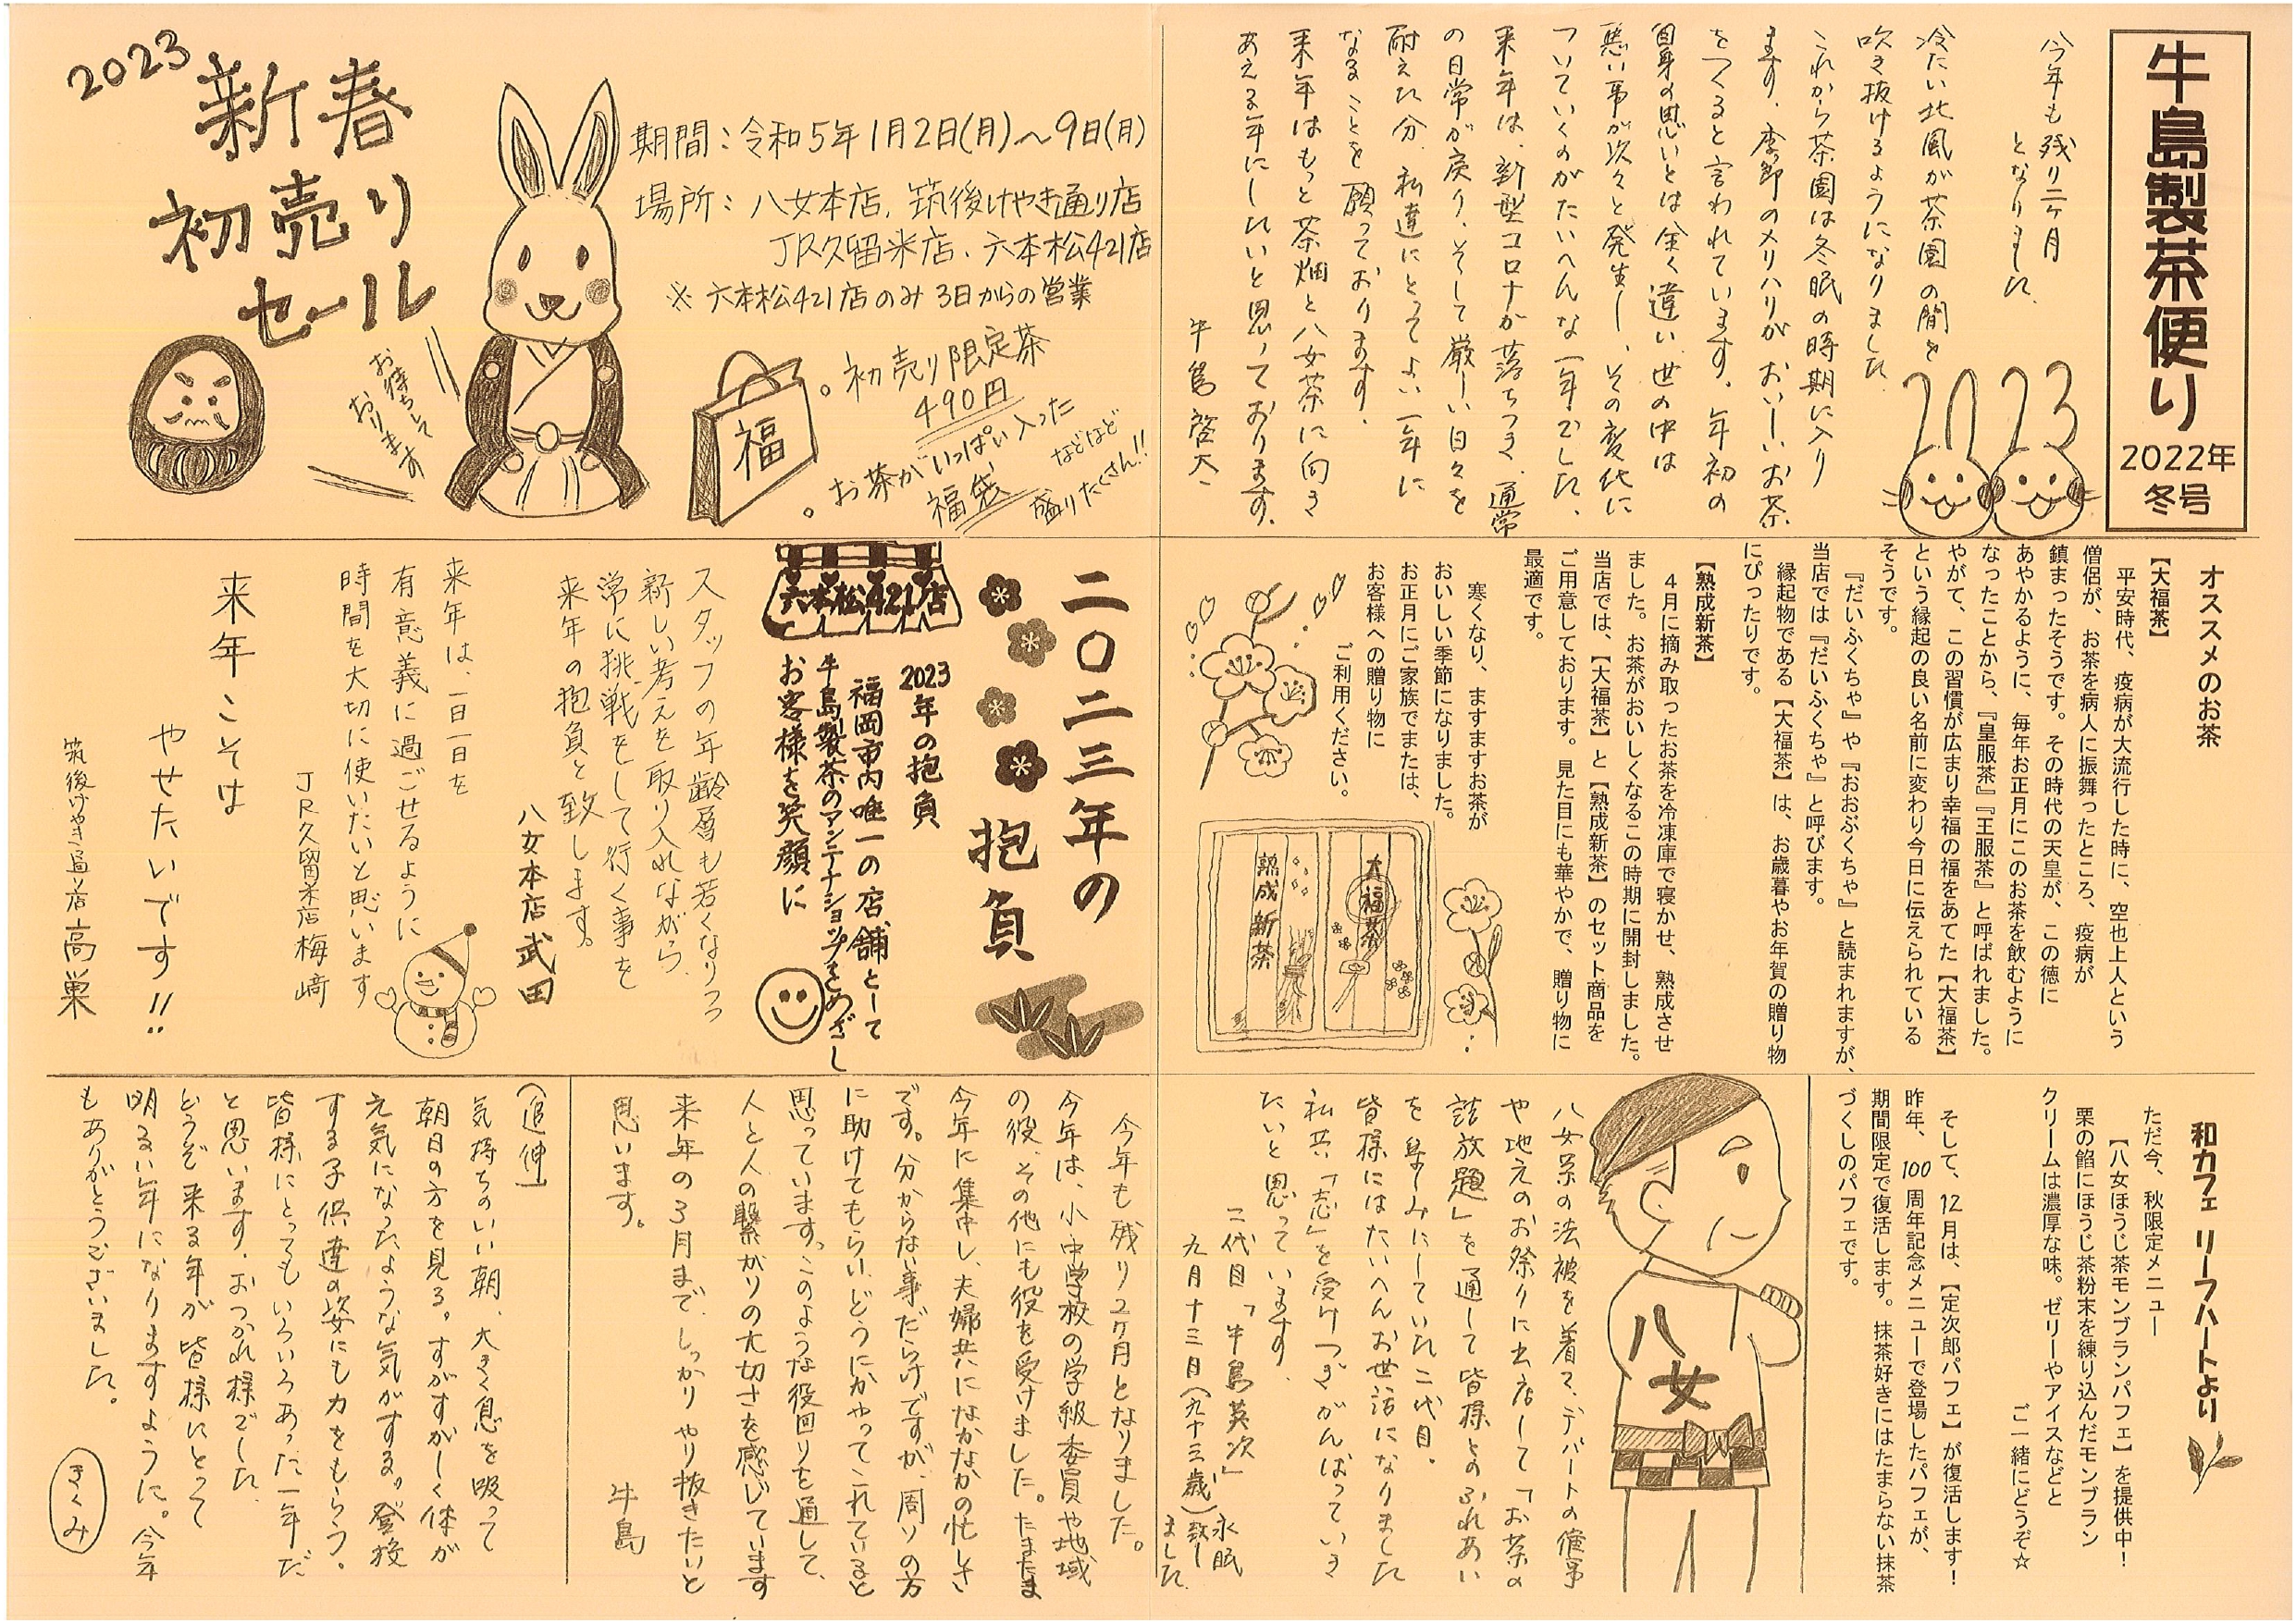 牛島製茶便り
2022年
冬号
今年も残り二ヶ月
となりました。
冷たい北風が茶園の間を
吹き抜けるようになりました。
これから茶園は冬眠の時期に入り
ます。季節のメリハリがおいしいお茶
をつくると言われています。年初の
自身の思いとは全く違い世の中は
悪い事が次々と発生し、その変化に
ついていくのがたいへんな一年でした。
来年は、新型コロナが落ちつき、通常
の日常が戻り、そして厳しい日々を
耐えた分、私達にとってよい一年に
なることを願っております。
来年はもっと茶畑と八女茶に向き
あえる年にしたいと思っております。
牛島啓太
2023
2023
新春
初売り
セール
お待ちして
おります
期間：令和5年1月2日(月)～9日(月)
場所：八女本店、筑後けやき通り店
JR久留米店、六本松421店
※六本松421店のみ3日からの営業
福
。初売り限定茶
490円
。お茶がいっぱい入った
福袋
などなど
盛りたくさん!!
オススメのお茶
【大福茶】
平安時代、疫病が大流行した時に、空也上人という
僧侶が、お茶を病人に振舞ったところ、疫病が
鎮まったそうです。その時代の天皇が、この徳に
あやかるように、毎年お正月にこのお茶を飲むように
なったことから、『皇服茶』『王服茶』と呼ばれました。
やがて、この習慣が広まり幸福の福をあてた【大福茶】
という縁起の良い名前に変わり今日に伝えられている
そうです。
『だいふくちゃ』や『おおぶくちゃ』と読まれますが、
当店では『だいふくちゃ』と呼びます。
縁起物である【大福茶】は、お歳暮やお年賀の贈り物
にぴったりです。
【熟成新茶】
４月に摘み取ったお茶を冷凍庫で寝かせ、熟成させ
ました。お茶がおいしくなるこの時期に開封しました。
当店では、【大福茶】と【熟成新茶】のセット商品を
ご用意しております。見た目にも華やかで、贈り物に
最適です。
寒くなり、ますますお茶が
おいしい季節になりました。
お正月にご家族でまたは、
お客様への贈り物に
ご利用ください。
大福茶
熟成新茶
二〇二三年の
抱負
六本松421店
2023年の抱負
福岡市内唯一の店舗として
牛島製茶のアンテナショップをめざし
お客様を笑顔に
スタッフの年齢層も若くなりつつ
新しい考えを取り入れながら、
常に挑戦をして行く事を
来年の抱負と致します。
八女本店 武田
来年は、一日一日を
有意義に過ごせるように
時間を大切に使いたいと思います
JR久留米店 梅﨑
来年こそは
やせたいです!!
筑後けやき通り店 高巣
和カフェ リーフハートより
ただ今、秋限定メニュー
【八女ほうじ茶モンブランパフェ】を提供中！
栗の餡にほうじ茶粉末を練り込んだモンブラン
クリームは濃厚な味。ゼリーやアイスなどと
ご一緒にどうぞ☆
そして、12月は、【定次郎パフェ】が復活します！
昨年、100周年記念メニューで登場したパフェが、
期間限定で復活します。抹茶好きにはたまらない抹茶
づくしのパフェです。
八女
八女茶の法被を着て、デパートの催事
や地元のお祭りに出店して「お茶の
詰放題」を通して皆様とのふれあい
を楽しみにしていた二代目。
皆様にはたいへんお世話になりました
私共、「志」を受けつぎがんばっていき
たいと思っています。
二代目「牛島英次」
九月十三日（九十三歳）永眠
致しました。
今年も残り2ヶ月となりました。
今年は、小中学校の学級委員や地域
の役、その他にも役を受けました。たまたま
今年に集中し、夫婦共になかなかの忙しさ
です。分からない事だらけですが、周りの方
に助けてもらい、どうにかやってこれていると
思っています。このような役回りを通して、
人と人の繋がりの大切さを感じています
来年の3月まで、しっかりやり抜きたいと
思います。
牛島
(追伸)
気持ちのいい朝、大きく息を吸って
朝日の方を見る。すがすがしく体が
元気になったような気がする。登校
する子供達の姿にも力をもらう。
皆様にとってもいろいろあった一年だ
と思います。おつかれ様でした。
どうぞ来る年が皆様にとって
明るい年になりますように。今年
もありがとうございました。
きくみ